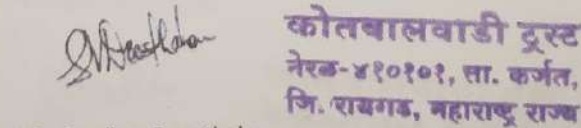 कोतवालवाडी ट्रस्ट
नेरळ-४१०१०१, ता. कर्जत,
जि. रायगड, महाराष्ट्र राज्य